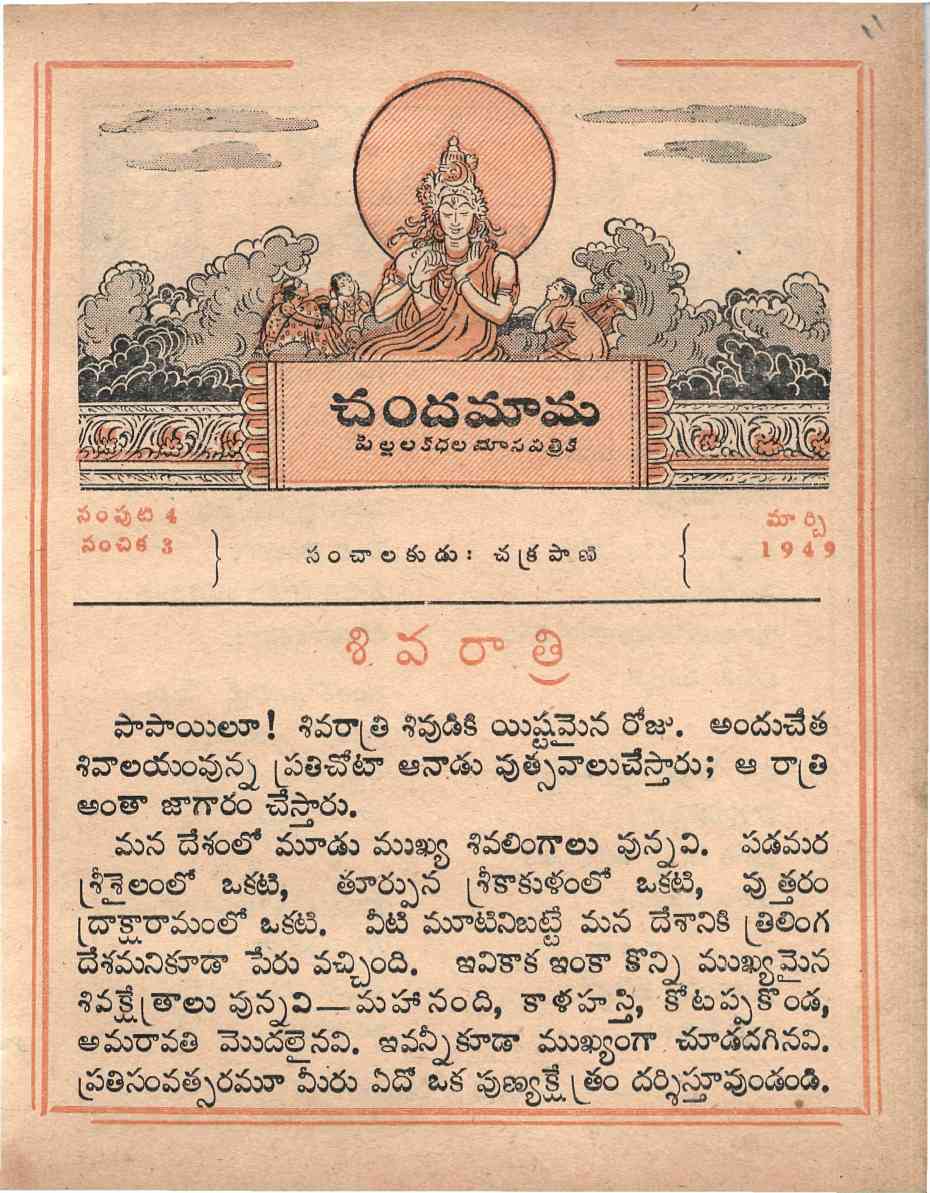 11
చందమామ
పిల్లల కథల మాస పత్రిక
సంపుటి 4
సంచిక 3
సంచాలకుడు : చక్రపాణి
మార్చి
1949
శివరాత్రి
పాపాయిలూ! శివరాత్రి శివుడికి యిష్టమైన రోజు. అందుచేత
శివాలయంవున్న ప్రతిచోటా ఆనాడు వుత్సవాలుచేస్తారు; ఆ రాత్రి
అంతా జాగారం చేస్తారు.
మన దేశంలో మూడు ముఖ్య శివలింగాలు వున్నవి. పడమర
శ్రీశైలంలో ఒకటి, తూర్పున శ్రీకాకుళంలో ఒకటి, వుత్తరం
ద్రాక్షారామంలో ఒకటి. వీటి మూటినిబట్టే మన దేశానికి త్రిలింగ
దేశమనికూడా పేరు వచ్చింది. ఇవికాక ఇంకా కొన్ని ముఖ్యమైన
శివక్షేత్రాలు వున్నవి—మహానంది, కాళహస్తి, కోటప్పకొండ,
అమరావతి మొదలైనవి. ఇవన్నీకూడా ముఖ్యంగా చూడదగినవి.
ప్రతిసంవత్సరమూ మీరు ఏదో ఒక పుణ్యక్షేత్రం దర్శిస్తూవుండండి.